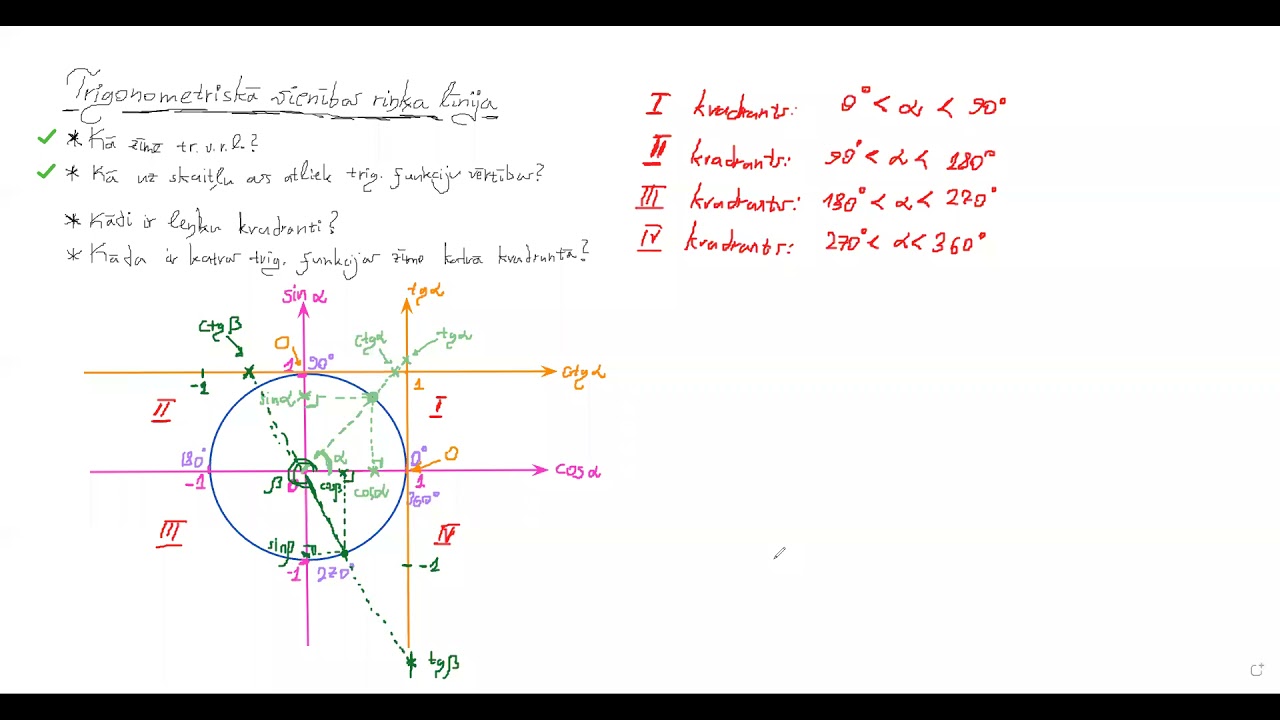 Trigonometriskā vienības riņķa līnija
* Kā zīmē tr. v. r. l.?
* Kā uz skaitļu ass atliek trig. funkciju vērtības?
* Kādi ir leņķu kvadranti?
* Kāda ir katras trig. funkcijas zīme katrā kvadrantā?
I kvadrants: 0° < α < 90°
II kvadrants: 90° < α < 180°
III kvadrants: 180° < α < 270°
IV kvadrants: 270° < α < 360°
sin α
tg α
ctg β
0
ctg α
tg α
1
90°
-1
1
ctg α
II
sin α
I
180°
α
0°
0
-1
β
0
cos β
cos α
1
cos α
360°
III
sin β
IV
-1
270°
-1
tg β